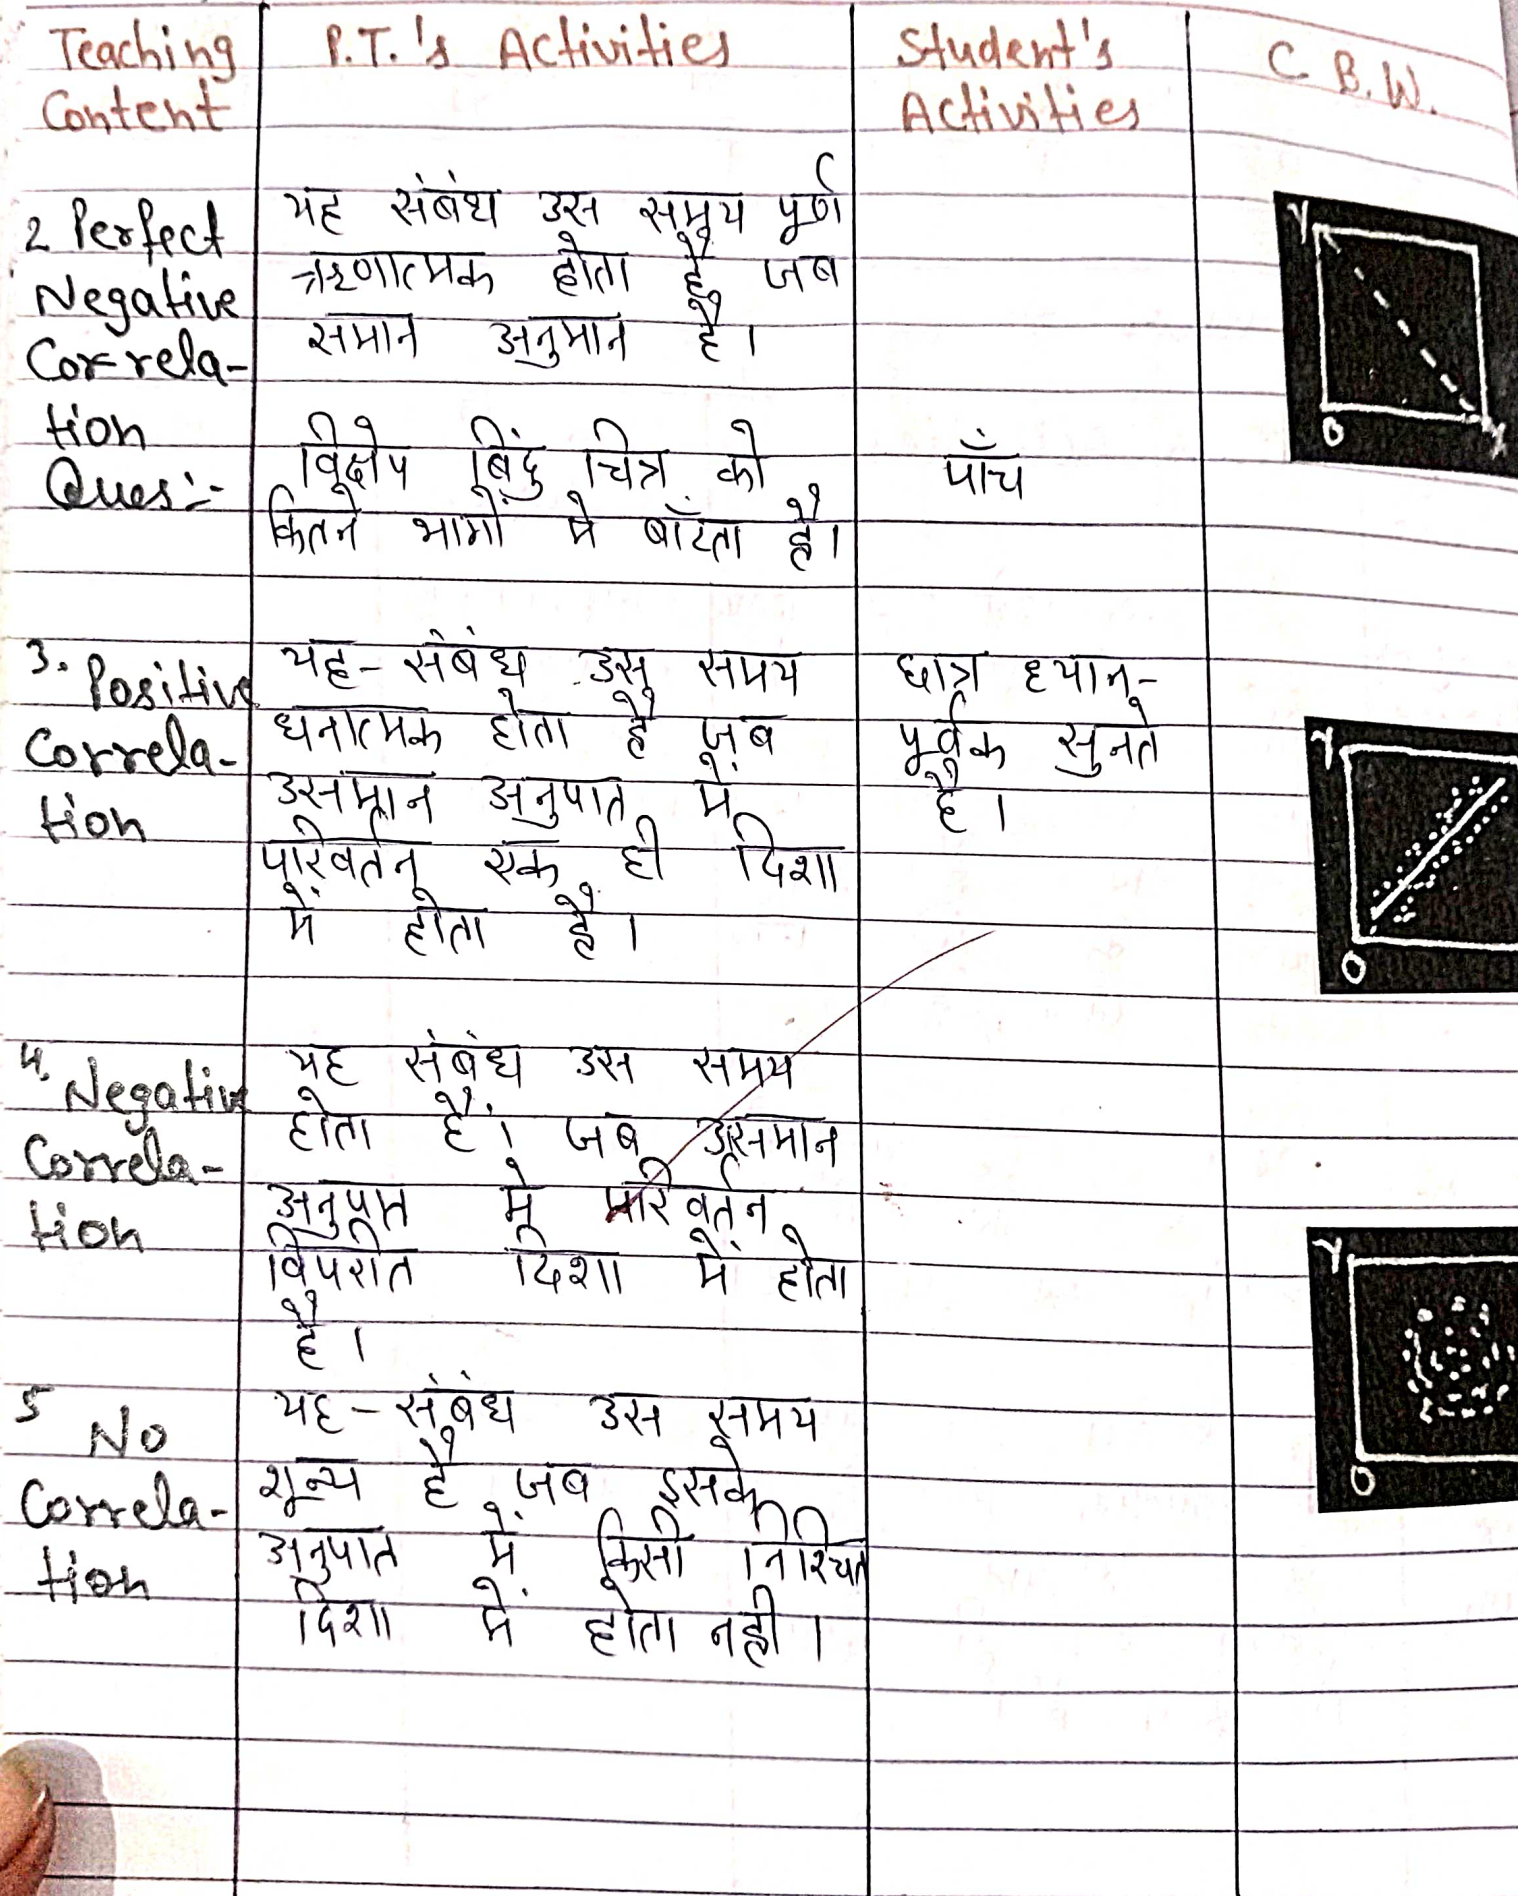 Teaching Content
P.T.'s Activities
Student's Activities
C.B.W.
2 Perfect
Negative
Correla-
tion
यह संबंध उस समय पूर्ण
ऋणात्मक होता है जब
समान अनुमान है।
Ques:-
विक्षेप बिंदु चित्र को
कितने भागों मे बाँटता है।
पाँच
Y
O
X
3. Positive
Correla-
tion
यह- संबंध उस समय
धनात्मक होता है जब
उसमान अनुपात में
परिवर्तन एक ही दिशा
में होता है।
छात्र ध्यान-
पूर्वक सुनते
है।
Y
O
4. Negative
Correla-
tion
यह संबंध उस समय
होता है। जब असमान
अनुपात मे परिवर्तन
विपरीत दिशा में होता
है।
5 No
Correla-
tion
यह- संबंध उस समय
शून्य है जब इसके
अनुपात में किसी निश्चित
दिशा में होता नही।
Y
O